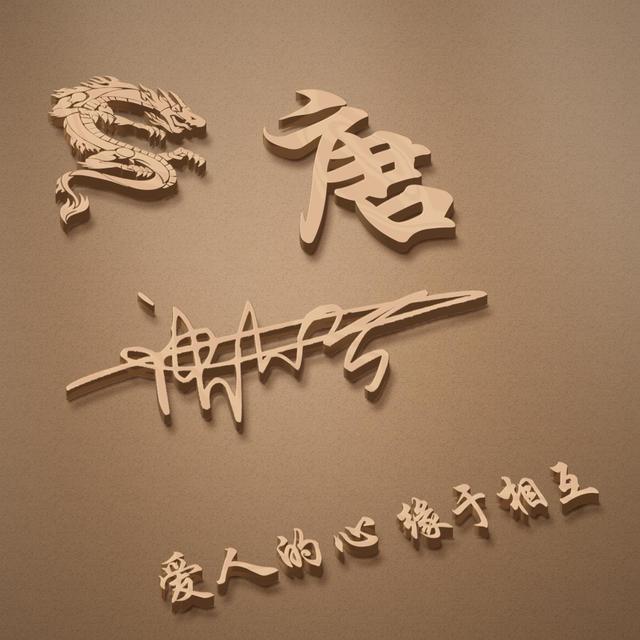 唐
爱人的心缘于相互